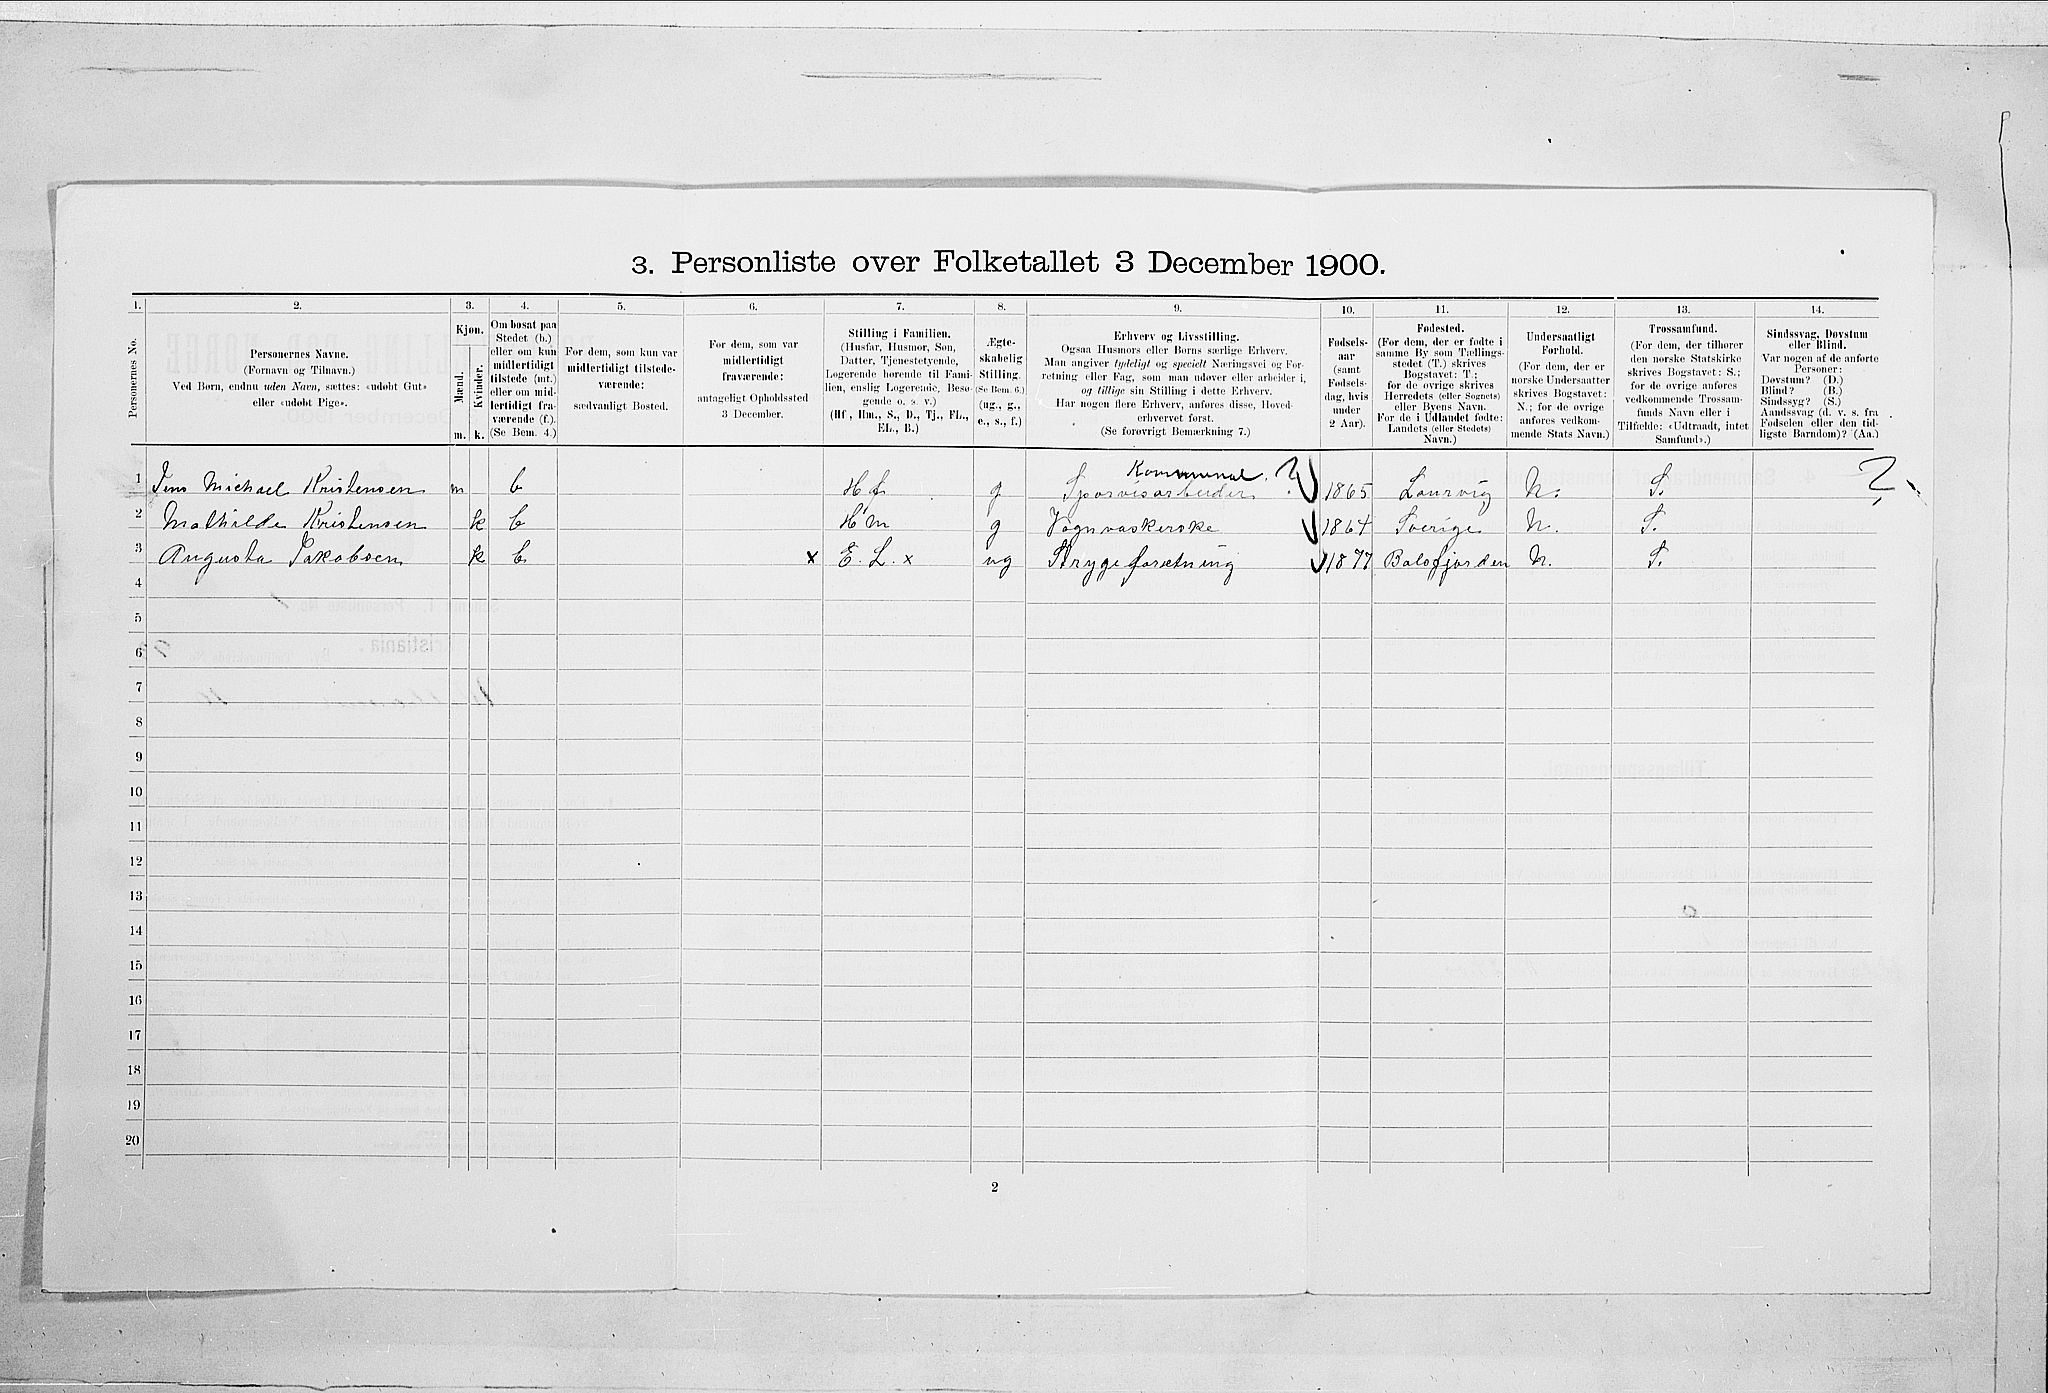 3. Personliste over Folketallet 3 December 1900.
1. 2. 3. 4. 5. 6. 7. 8. 9. 10. 11. 12. 13. 14.
Personernes No.
Personernes Navne.
(Fornavn og Tilnavn.)
Ved Børn, endnu uden Navn, sættes: «udøbt Gut»
eller «udøbt Pige».
Kjøn.
Mænd.
Kvinder.
m. k.
Om bosat paa
Stedet (b.)
eller om kun
midlertidigt
tilstede (mt.)
eller om mid-
lertidigt fra-
værende (f.).
(Se Bem. 4.)
For dem, som kun var
midlertidigt tilstede-
værende:
sædvanligt Bosted.
For dem, som var
midlertidigt
fraværende:
antageligt Opholdssted
3 December.
Stilling i Familien.
(Husfar, Husmor, Søn,
Datter, Tjenestetyende,
Logerende hørende til Fami-
lien, enslig Logerende, Besø-
gende o. s. v.)
(Hf., Hm., S., D., Tj., FL.,
EL., B.)
Ægte-
skabelig
Stilling.
(Se Bem. 6.)
(ug., g.,
e., s., f.)
Erhverv og Livsstilling.
Ogsaa Husmors eller Børns særlige Erhverv.
Man angiver tydeligt og specielt Næringsvei og For-
retning eller Fag, som man udøver eller arbeider i,
og tillige sin Stilling i dette Erhverv.
Har nogen flere Erhverv, anføres disse, Hoved-
erhvervet først.
(Se forøvrigt Bemærkning 7.)
Fødsels-
aar
(samt
Fødsels-
dag, hvis
under
2 Aar).
Fødested.
(For dem, der er fødte i
samme By som Tællings-
stedet (T.) skrives
Bogstavet: T.;
for de øvrige skrives
Herredets (eller Sognets)
eller Byens Navn.
For de i Udlandet fødte:
Landets (eller Stedets)
Navn.)
Undersaatligt
Forhold.
(For dem, der er
norske Undersaatter
skrives Bogstavet:
N.; for de øvrige
anføres vedkom-
mende Stats Navn.)
Trossamfund.
(For dem, der tilhører
den norske Statskirke
skrives Bogstavet: S.;
for de øvrige anføres
vedkommende Trossam-
funds Navn eller i
Tilfælde: «Udtraadt, intet
Samfund».)
Sindssvag, Døvstum
eller Blind.
Var nogen af de anførte
Personer:
Døvstum? (D.)
Blind? (B.)
Sindssyg? (S.)
Aandssvag (d. v. s. fra
Fødselen eller den tid-
ligste Barndom)? (Aa.)
Kommunal. ?
1 Jens Michael Kristensen m b Hf g Sporvisarbeider 1865 Laurvig N. S. ?
2 Mathilde Kristensen k b Hm g Vognvaskerske 1864 Sverige N. S.
3 Augusta Jakobsen k b x E. L. x ug Strygeforretning 1877 Balsfjorden N. S.
4
5
6
7
8
9
10
11
12
13
14
15
16
17
18
19
20
2